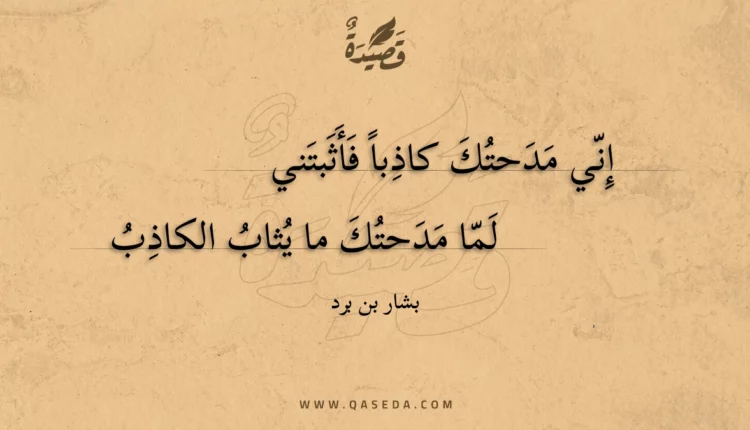 قَصِيدَةٌ
إِنّي مَدَحتُكَ كاذِباً فَأَثَبتَني
لَمّا مَدَحتُكَ ما يُثابُ الكاذِبُ
بشار بن برد
WWW.QASEDA.COM